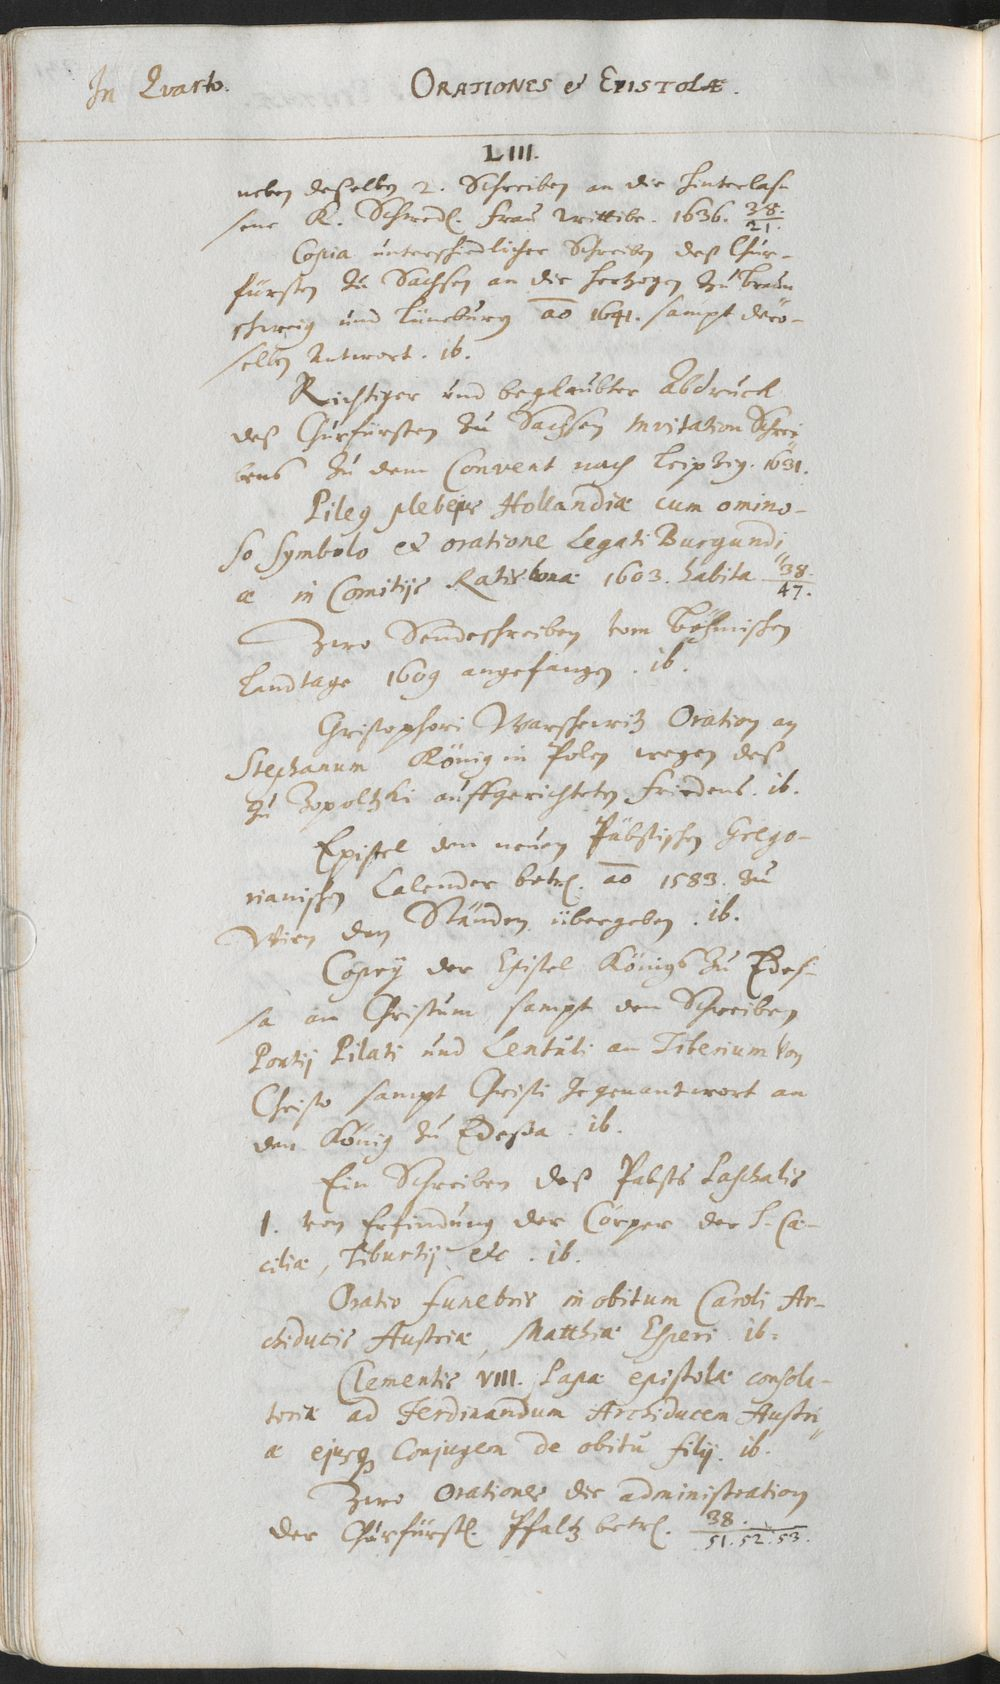 In Quarto. ORATIONES & EPISTOLÆ.
LIII.
neben deßelben 2. Schreiben an die hinterlas-
sene K. Schwed. Frau Wittibe. 1636. 38./21.
Copia unterschiedlicher Schreiben deß Chur-
fürsten zu Sachsen an die Hertzogen zu Braun
schweig und Lüneburg ao 1641. sampt dero-
selben Antwort. ib.
Richtiger und beglaubter Abdruck
deß Churfürsten zu Sachsen Invitation Schrei
bens zu dem Convent nach Leipzig. 1631.
Pileg plebejus Hollandiæ cum omino-
so symbolo et oratione Legati Burgundi
æ in Comitijs Ratisbonæ 1603. habita 38./47.
Zwo Sendeschreiben vom Böhmischen
Landtage 1609 angefangen. ib.
Christophori Warschewitz Oration an
Stephanum König in Polen wegen deß
zu Zopoltzki auffgerichteten Friedens. ib.
Epistel den neuen Päbstischen Grego-
rianischen Calender betr. ao 1583. zu
Wien den Ständen übergeben. ib.
Copey der Epistel Königs zu Edes-
sa an Christum sampt dem Schreiben
Pontij Pilati und Lentuli an Tiberium von
Christo sampt Christi gegenantwort an
den König zu Edessa. ib.
Ein Schreiben deß Pabsts Paschalis
1. von Erfindung der Cörper der S. Cæ-
ciliæ, Tiburtij etc. ib.
Oratio funebris in obitum Caroli Ar-
chiducis Austriæ, Matthiæ Esperi. ib.
Clementis VIII. Papæ epistolæ consola-
toriæ ad Ferdinandum Archiducem Austri
æ ejusq Conjugem de obitu filij. ib.
Zwo Orationes die administration
der Churfürstl. Pfaltz betr. 38./51.52.53.